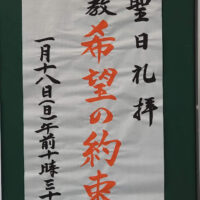 聖日礼拝
教 希望の約束
一月十八日(日)午前十時三十